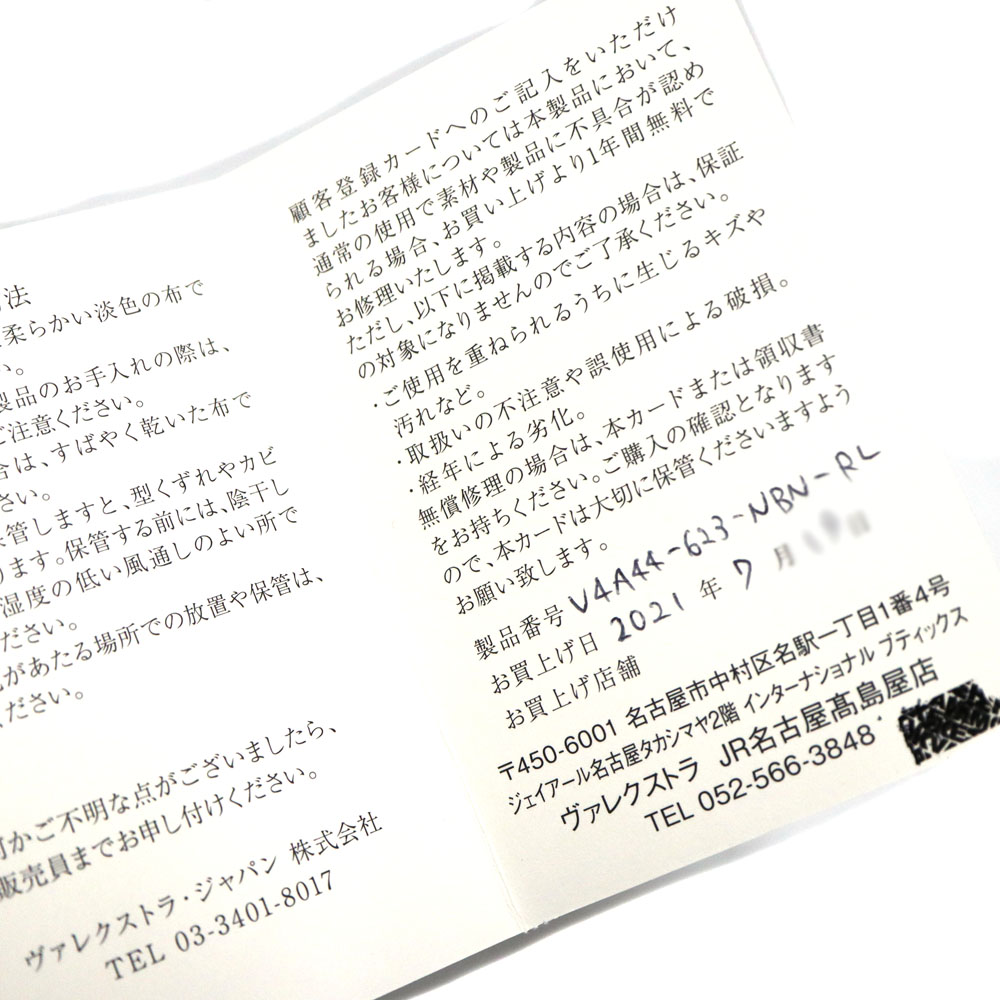 法
柔らかい淡色の布で
い。
製品のお手入れの際は、
ご注意ください。
合は、すばやく乾いた布で
さい。
保管しますと、型くずれやカビ
ります。保管する前には、陰干し
湿度の低い風通しのよい所で
ださい。
があたる場所での放置や保管は、
ださい。
何かご不明な点がございましたら、
販売員までお申し付けください。
ヴァレクストラ・ジャパン 株式会社
TEL 03-3401-8017
顧客登録カードへのご記入をいただけ
ましたお客様については本製品において、
通常の使用で素材や製品に不具合が認め
られる場合、お買い上げより1年間無料で
お修理いたします。
ただし、以下に掲載する内容の場合は、保証
の対象になりませんのでご了承ください。
・ご使用を重ねられるうちに生じるキズや
汚れなど。
・取扱いの不注意や誤使用による破損。
・経年による劣化。
無償修理の場合は、本カードまたは領収書
をお持ちください。ご購入の確認となります
ので、本カードは大切に保管くださいますよう
お願い致します。
製品番号 V4A44-623-NBN-RL
お買上げ日 2021 年 7 月 日
お買上げ店舗
〒450-6001 名古屋市中村区名駅一丁目1番4号
ジェイアール名古屋タカシマヤ2階 インターナショナル ブティックス
ヴァレクストラ JR名古屋髙島屋店
TEL 052-566-3848